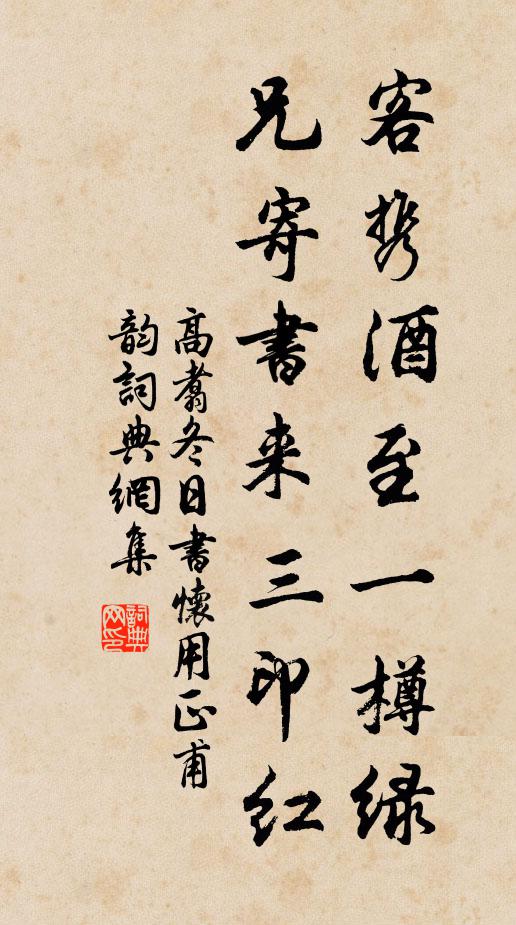 客携酒至一樽绿
兄寄書来三印红
高翥冬日書懷用正甫
韵詞典網集
詞典网印